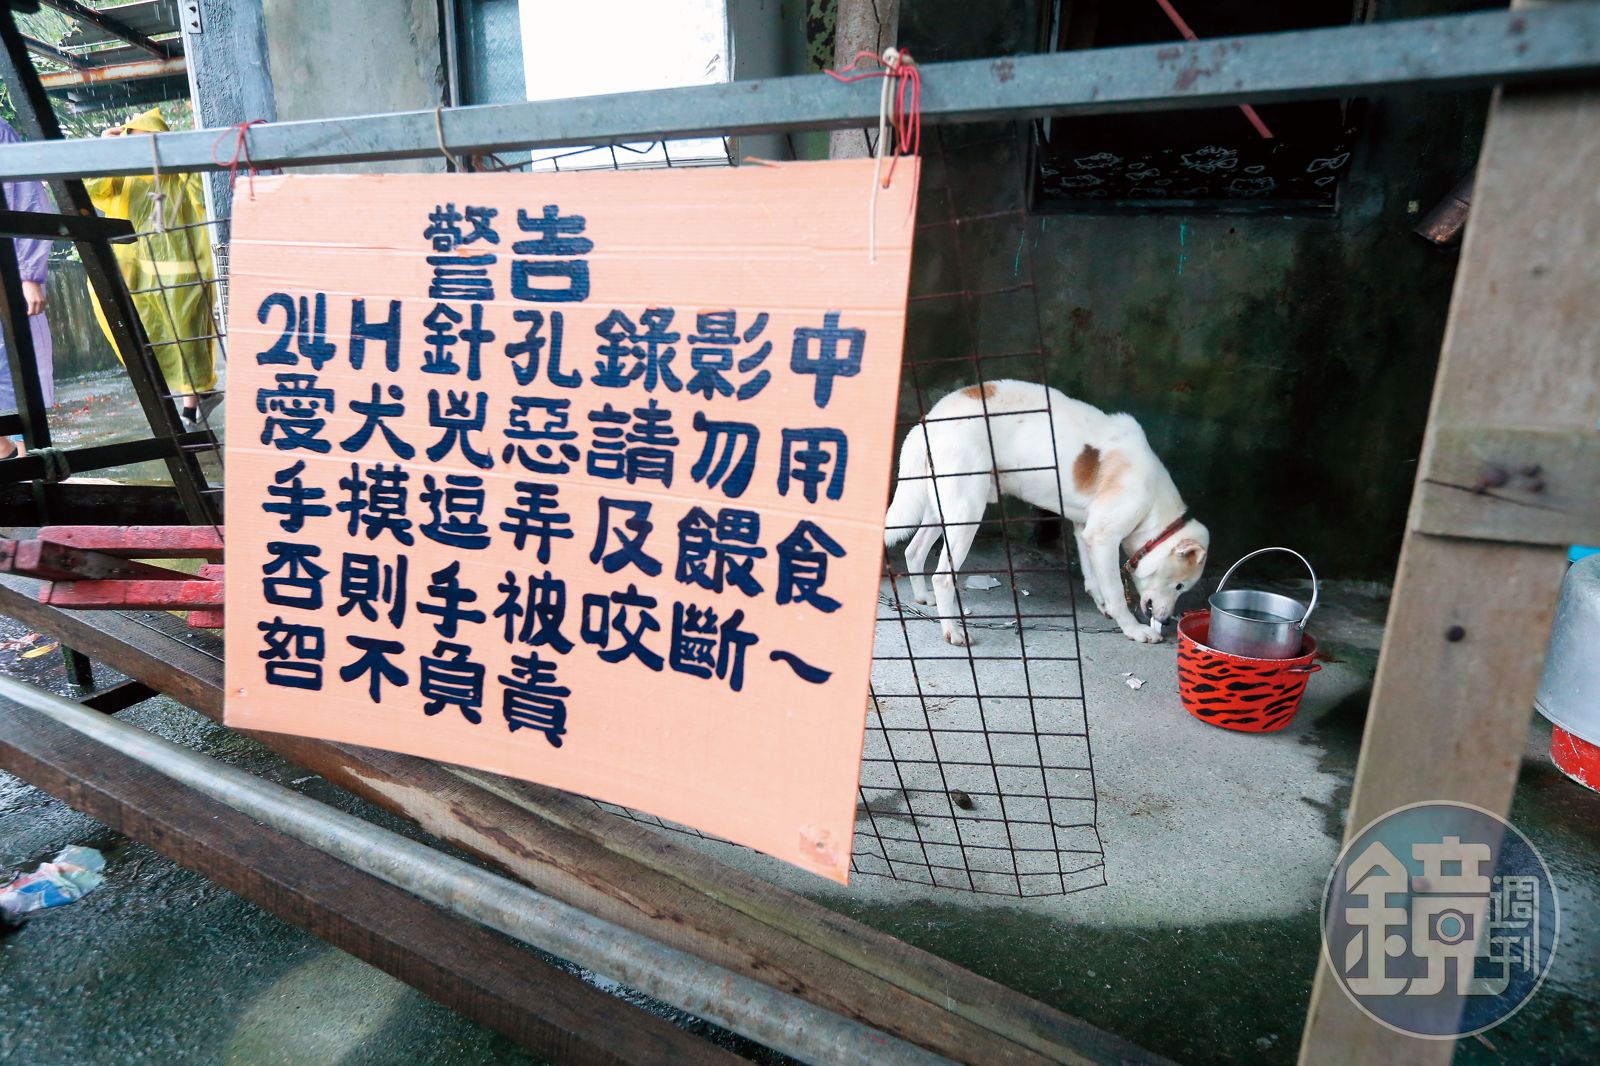 警告
24H針孔錄影中
愛犬兇惡請勿用
手摸逗弄及餵食
否則手被咬斷~
恕不負責
鏡週刊